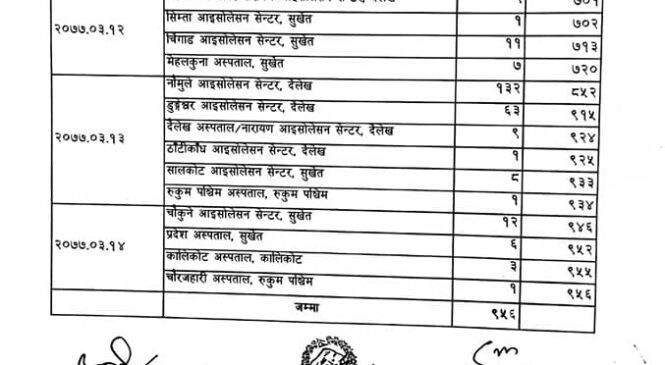 ७०१
सिम्ता आइसोलेसन सेन्टर, सुर्खेत १ ७०२
२०७७.०३.१२ चिंगाड आइसोलेसन सेन्टर, सुर्खेत ११ ७१३
मेहलकुना अस्पताल, सुर्खेत ७ ७२०
नौमुले आइसोलेसन सेन्टर, दैलेख १३२ ८५२
डुङ्गेश्वर आइसोलेसन सेन्टर, दैलेख ६३ ९१५
दैलेख अस्पताल/नारायण आइसोलेसन सेन्टर, दैलेख ९ ९२४
२०७७.०३.१३ ठाँटीकाँध आइसोलेसन सेन्टर, दैलेख १ ९२५
सालकोट आइसोलेसन सेन्टर, सुर्खेत ८ ९३३
रुकुम पश्चिम अस्पताल, रुकुम पश्चिम १ ९३४
चौकुने आइसोलेसन सेन्टर, सुर्खेत १२ ९४६
प्रदेश अस्पताल, सुर्खेत ६ ९५२
२०७७.०३.१४ कालिकोट अस्पताल, कालिकोट ३ ९५५
चौरजहारी अस्पताल, रुकुम पश्चिम १ ९५६
जम्मा ९५६